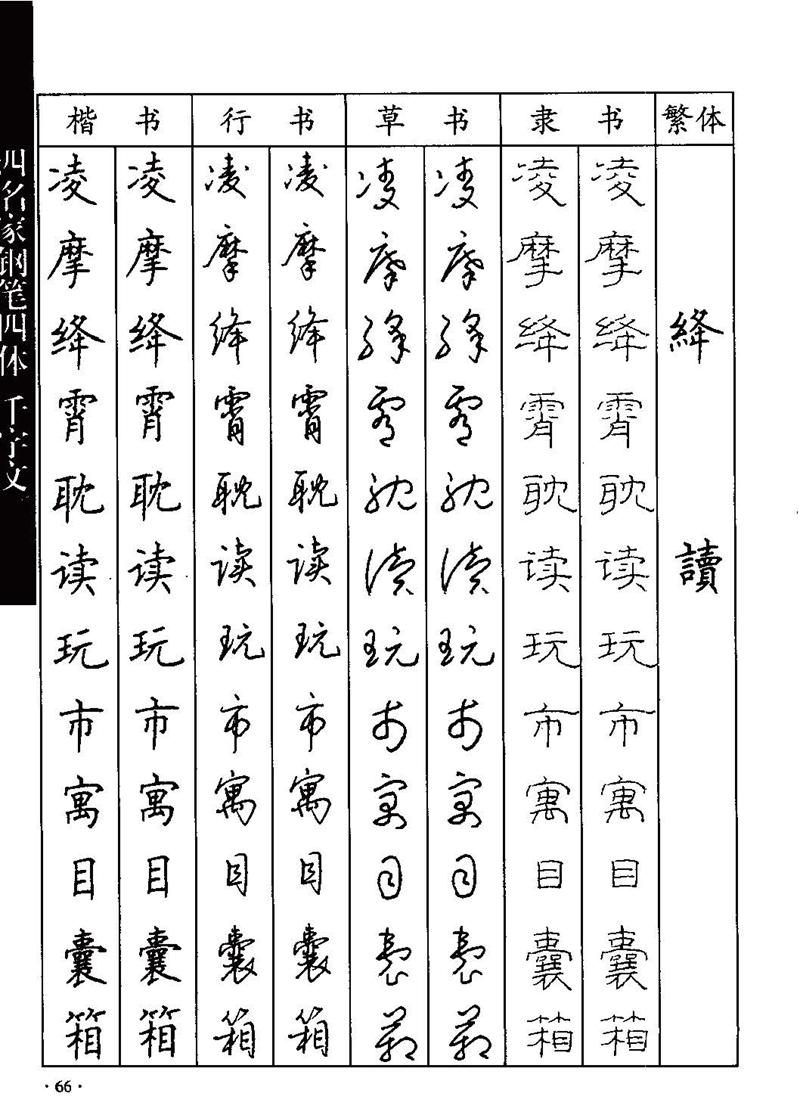 四名家钢笔四体 千字文
楷书 行书 草书 隶书 繁体
凌 凌 凌 凌 凌 凌 凌 凌
摩 摩 摩 摩 摩 摩 摩 摩
绛 绛 绛 绛 绛 绛 绛 绛 絳
霄 霄 霄 霄 霄 霄 霄 霄
耽 耽 耽 耽 耽 耽 耽 耽
读 读 读 读 读 读 读 读 讀
玩 玩 玩 玩 玩 玩 玩 玩
市 市 市 市 市 市 市 市
寓 寓 寓 寓 寓 寓 寓 寓
目 目 目 目 目 目 目 目
囊 囊 囊 囊 囊 囊 囊 囊
箱 箱 箱 箱 箱 箱 箱 箱
·66·